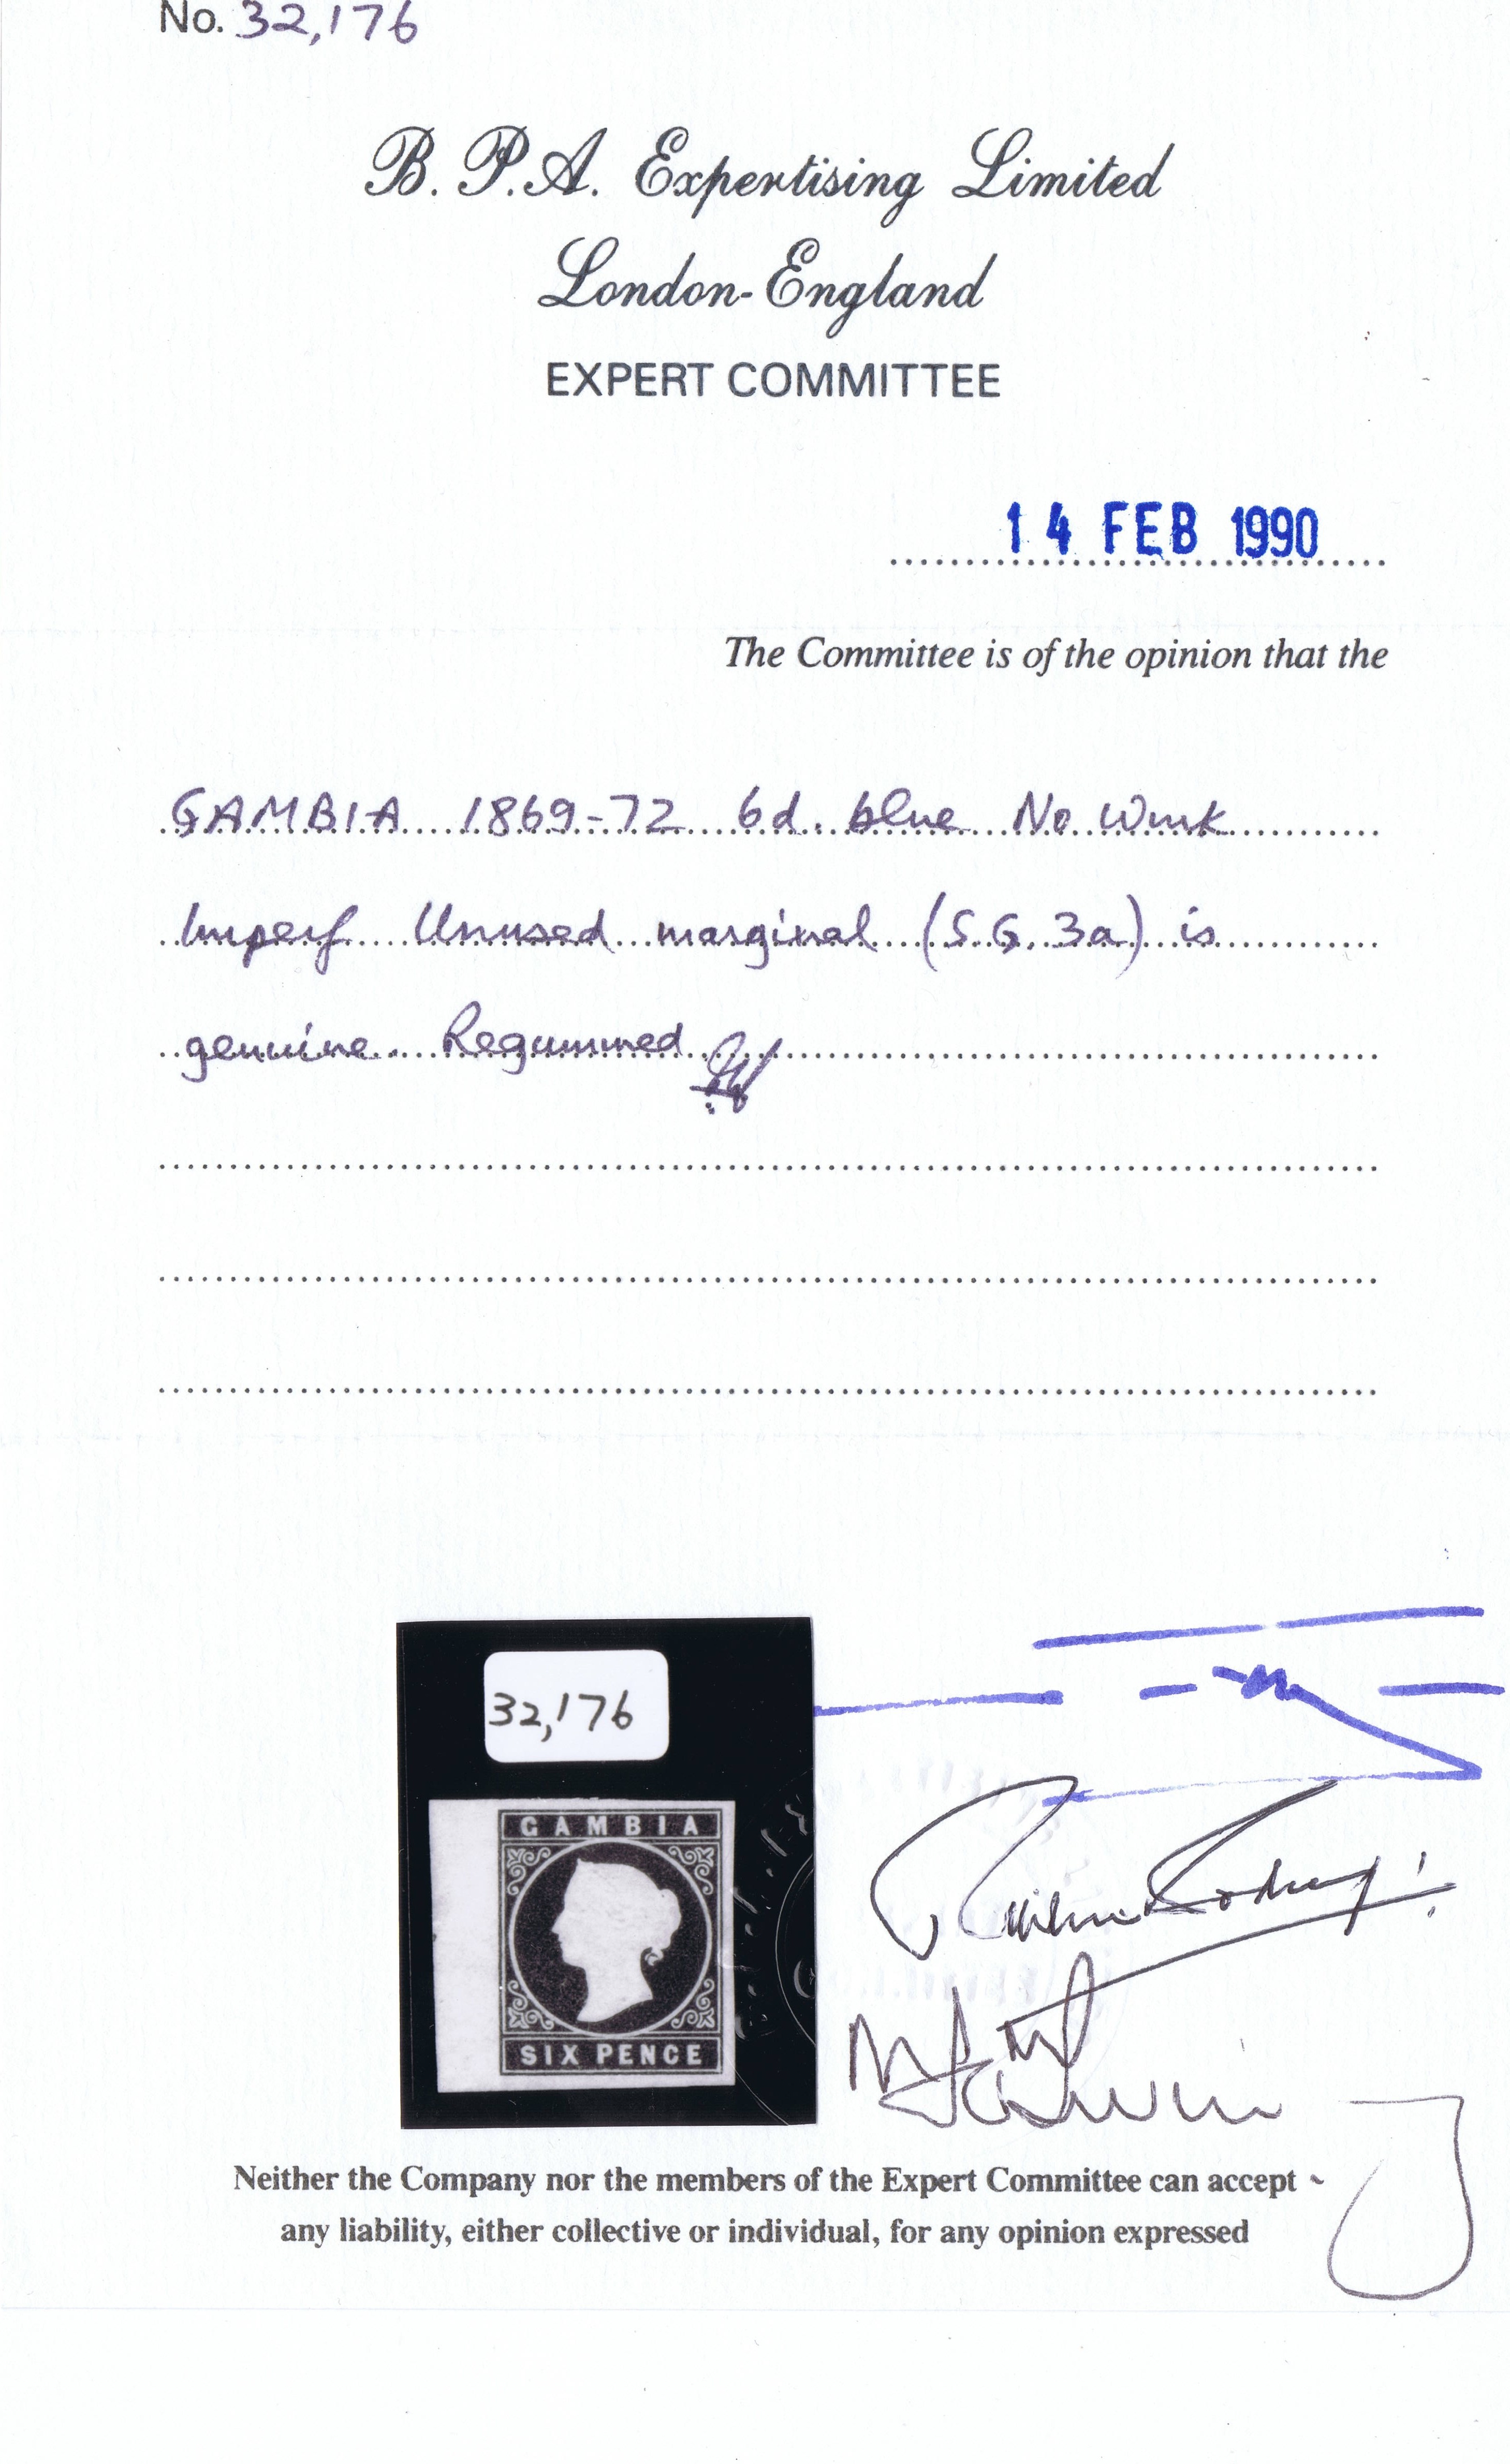 No. 32,176
B. P. A. Expertising Limited
London-England
EXPERT COMMITTEE
14 FEB 1990
The Committee is of the opinion that the
GAMBIA 1869-72 6d. blue No Wmk
Imperf Unused marginal (S.G. 3a) is
genuine. Regummed
32,176
GAMBIA
SIX PENCE
Neither the Company nor the members of the Expert Committee can accept
any liability, either collective or individual, for any opinion expressed